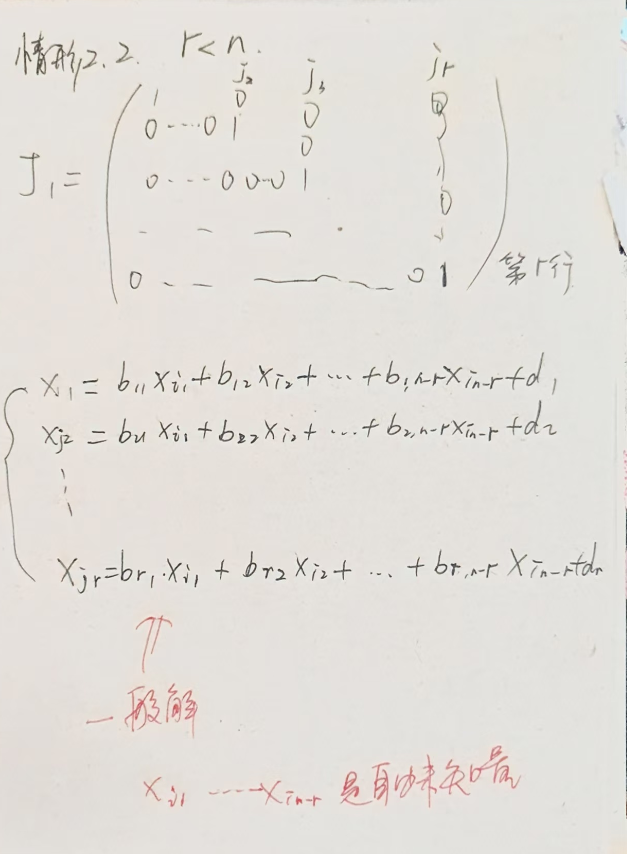 情形2.2. r<n.
j₂ j₃ jr
1 0 0 0
0 ---- 0 1 0
J₁ = 0 ---- 0 0--0 1 0
0 -- —— 0 1 第r行
x₁ = b₁₁xi₁ + b₁₂xi₂ + ... + b₁,n-r xin-r + d₁
xj₂ = b₂₁xi₁ + b₂₂xi₂ + ... + b₂,n-r xin-r + d₂
⋮
xjr = br₁·xi₁ + br₂xi₂ + ... + br,n-r xin-r + dr
⇑
一般解
xi₁ ---- xin-r 是自由未知